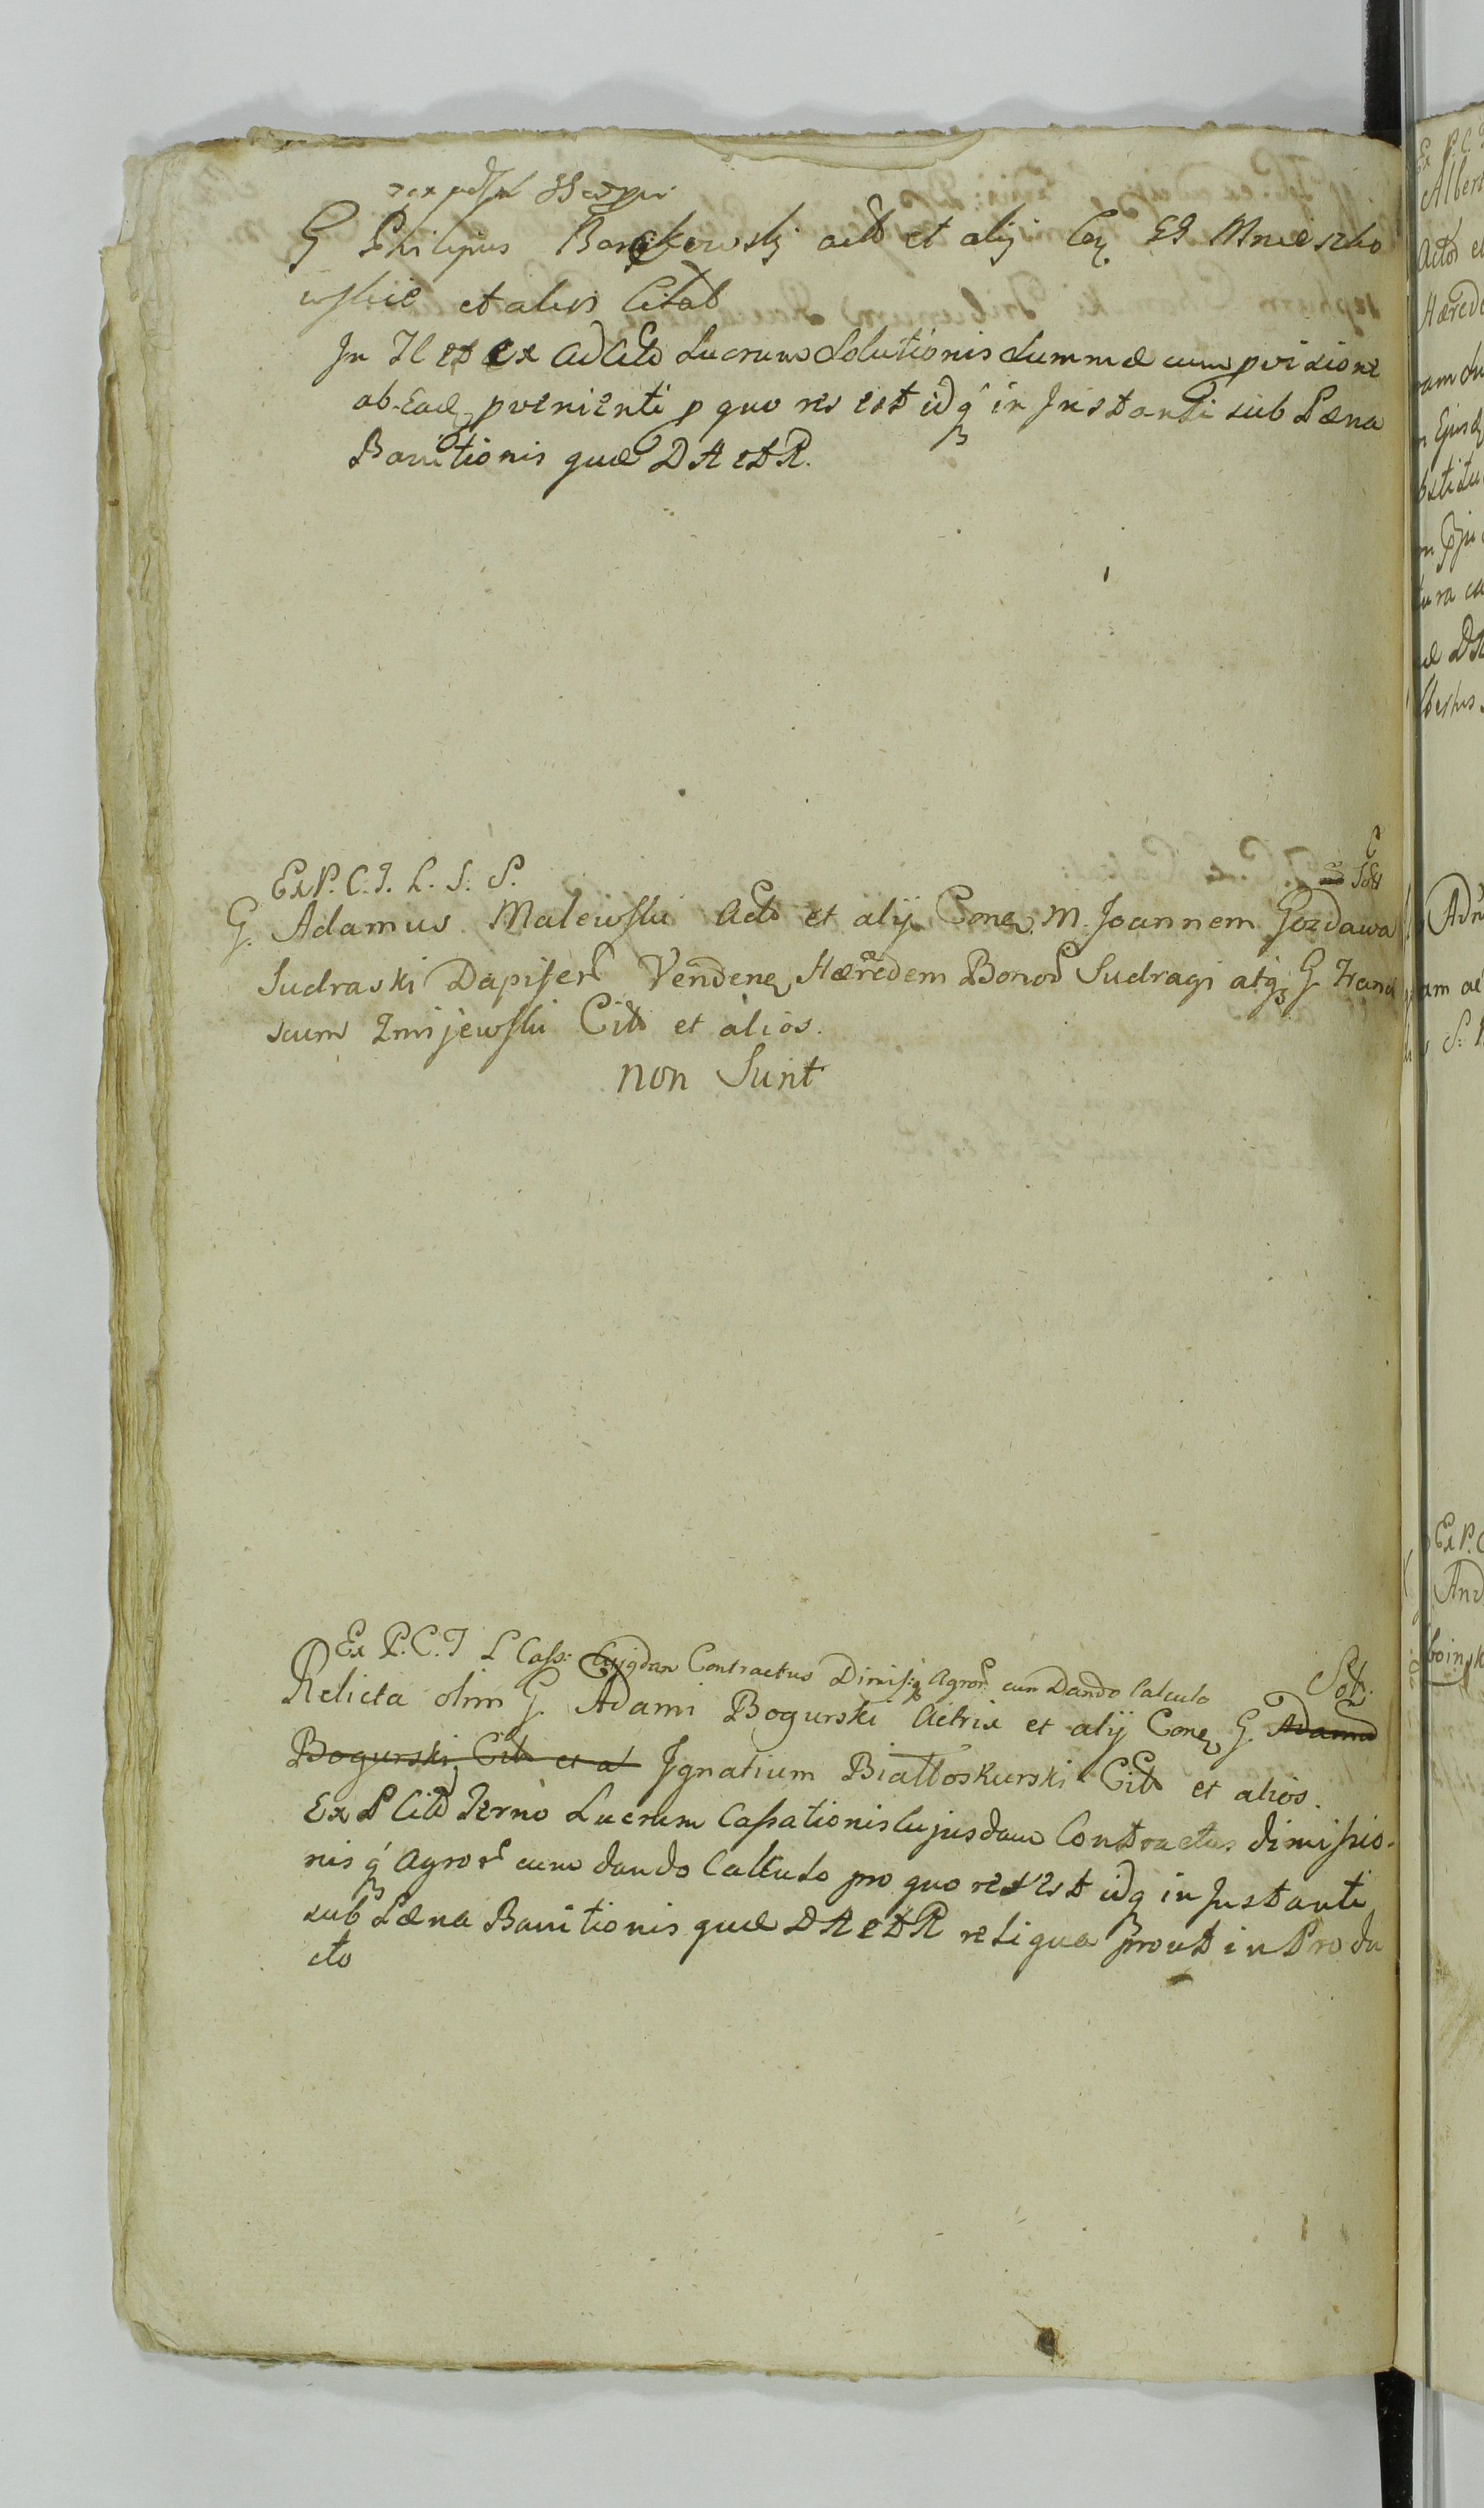 G Philipus Bonckowskj actd et alij Conq GG Mnieszko
wskie et alios Citat
In Tl et ex ad Citd Lucrum Solutionis Summæ cum pvisione
ab Eadq pvenienti p quo res est idq in Instanti sub Pæna
Banitionis quæ DA et R.
Ex P. C. T. L. S: S.
G. Adamus Malewski Actd et alij Conq. M. Joannem Gozdawa
Sudraski Dapifer Vendenq Hæredem Bonor Sudragi atq G. Franci
scum Zmijewski Citd et alios.
non Sunt
Ex P. C. T L Cass: Cujqdam Contractus Dimisq Agror cum Dando Calculo Sol:
Relicta olim G. Adami Bogurski Actrix et alij Conq G. Adamu
Bogurski Citd et al Ignatium Białłoskurski Citd et alios.
Ex P Citd Terno Lucrum Cassationis Cujusdam Contractus dimissio-
nis q Agror cum dando Calculo pro quo res est idq in Instanti
sub Pæna Banitionis quæ DA et R reliqua prout in Produ
cto